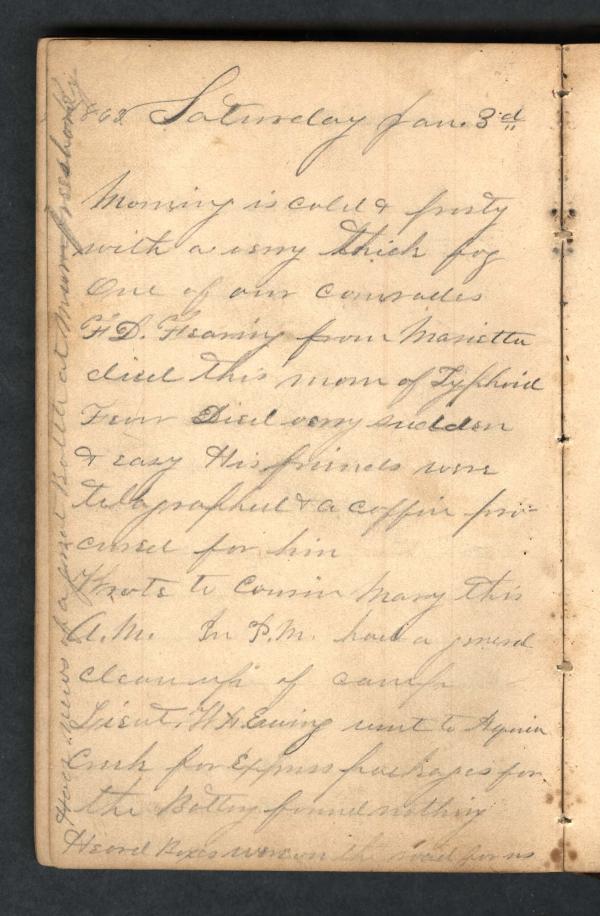 1863 Saturday Jan. 3d
Morning is cold & frosty
with a very thick fog
One of our comrades
F. D. Fearing from Marietta
died this morn of Typhoid
Fever Died very sudden
& easy His friends were
telagraphed & a coffin pro-
cured for him
Wrote to Cousin Mary this
A.M. In P.M. had a general
clean up of camp
Lieut. Ewing went to Aquia
Creek for Express packages for
the Battery found nothing
Heard Boxes were on the road for us
Have news of a great Battle at Murfreesboro